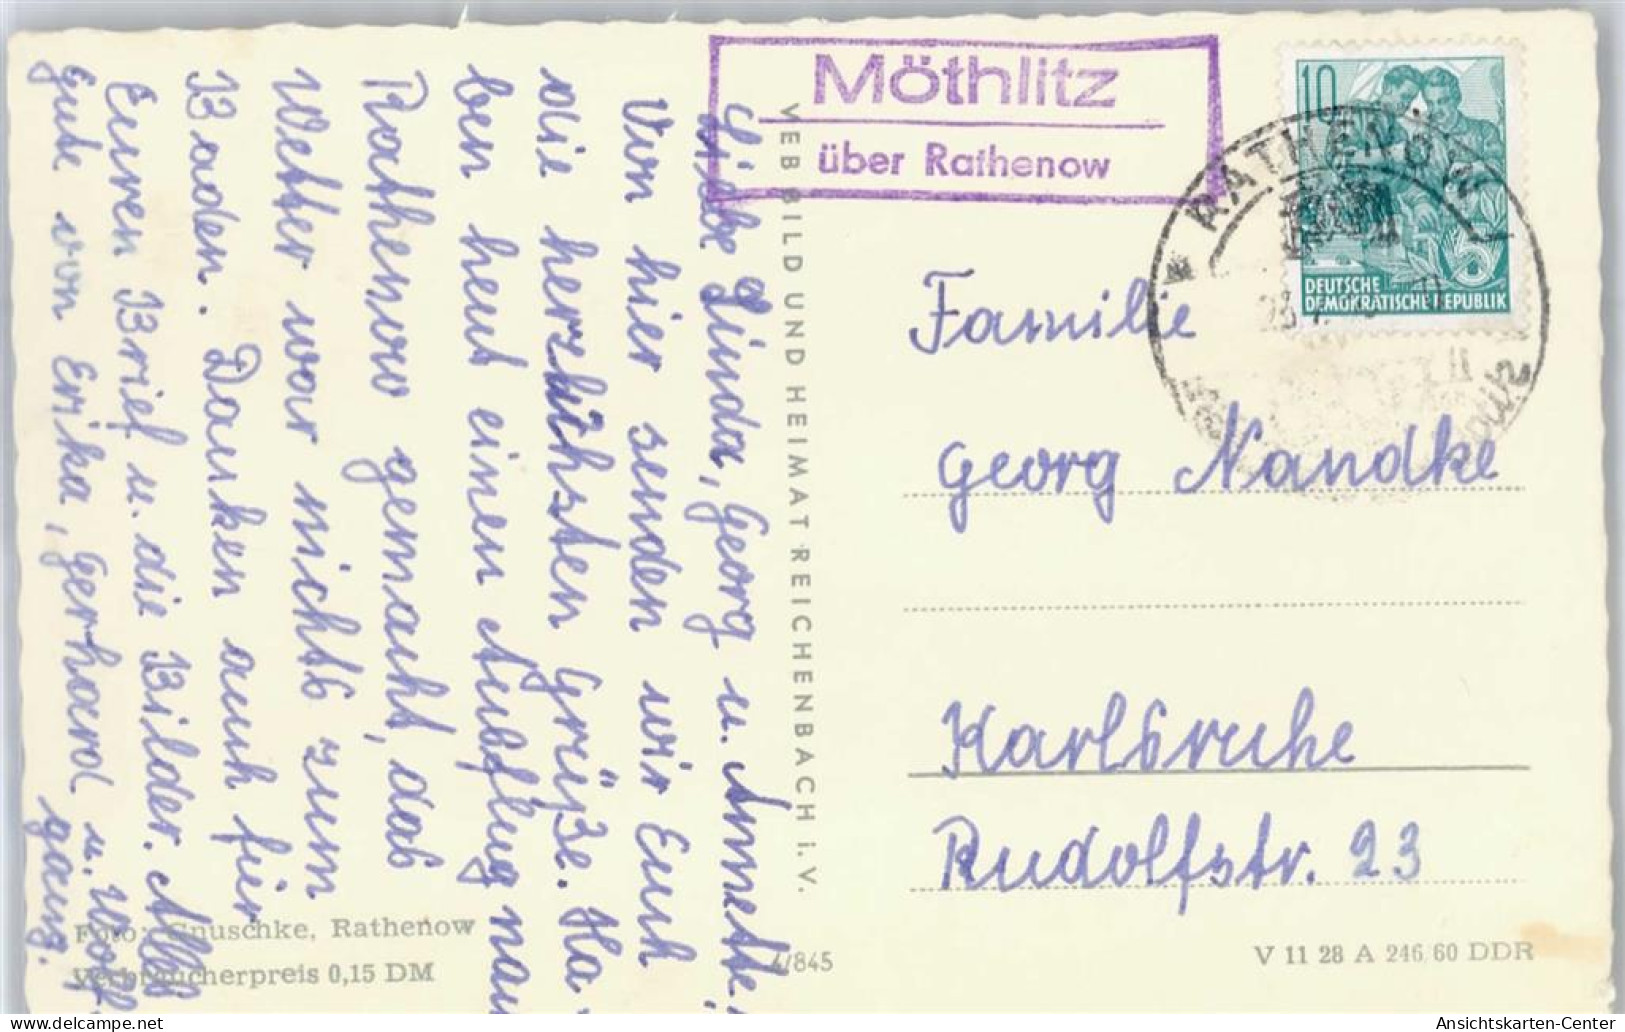 Möthlitz
über Rathenow
10
DEUTSCHE
DEMOKRATISCHE REPUBLIK
RATHENOW
Liebe Linda, Georg u. Annette!
Von hier senden wir Euch
die herzlichsten Grüße. Ha-
ben heut einen Ausflug nach
Rathenow gemacht, das
Wetter war nichts zum
Baden. Danken auch für
Euren Brief u. die Bilder. Alles
Gute von Erika, Gerhard u. Wolf-
gang.
VEB BILD UND HEIMAT REICHENBACH i. V.
Familie
Georg Nandke
Karlsruhe
Rudolfstr. 23
Foto: Gnuschke, Rathenow
Verbraucherpreis 0,15 DM
4/845
V 11 28 A 246/60 DDR
Ansichtskarten-Center